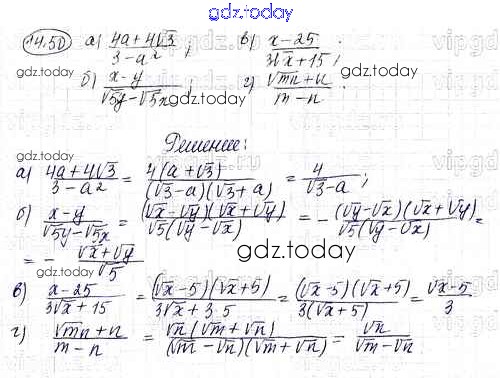 gdz.today
14.50) а) (4a+4√3)/(3-a²) ; в) (x-25)/(3√x+15) ;
gdz.today
б) (x-y)/(√5y-√5x) ; г) (√mn+n)/(m-n)
Решение:
gdz.today
а) (4a+4√3)/(3-a²) = 4(a+√3)/((√3-a)(√3+a)) = 4/(√3-a) ;
б) (x-y)/(√5y-√5x) = (√x-√y)(√x+√y)/(√5(√y-√x)) = -(√y-√x)(√x+√y)/(√5(√y-√x)) =
= -(√x+√y)/√5
gdz.today
gdz.today
в) (x-25)/(3√x+15) = (√x-5)(√x+5)/(3√x+3·5) = (√x-5)(√x+5)/(3(√x+5)) = (√x-5)/3
г) (√mn+n)/(m-n) = √n(√m+√n)/((√m-√n)(√m+√n)) = √n/(√m-√n)
gdz.today